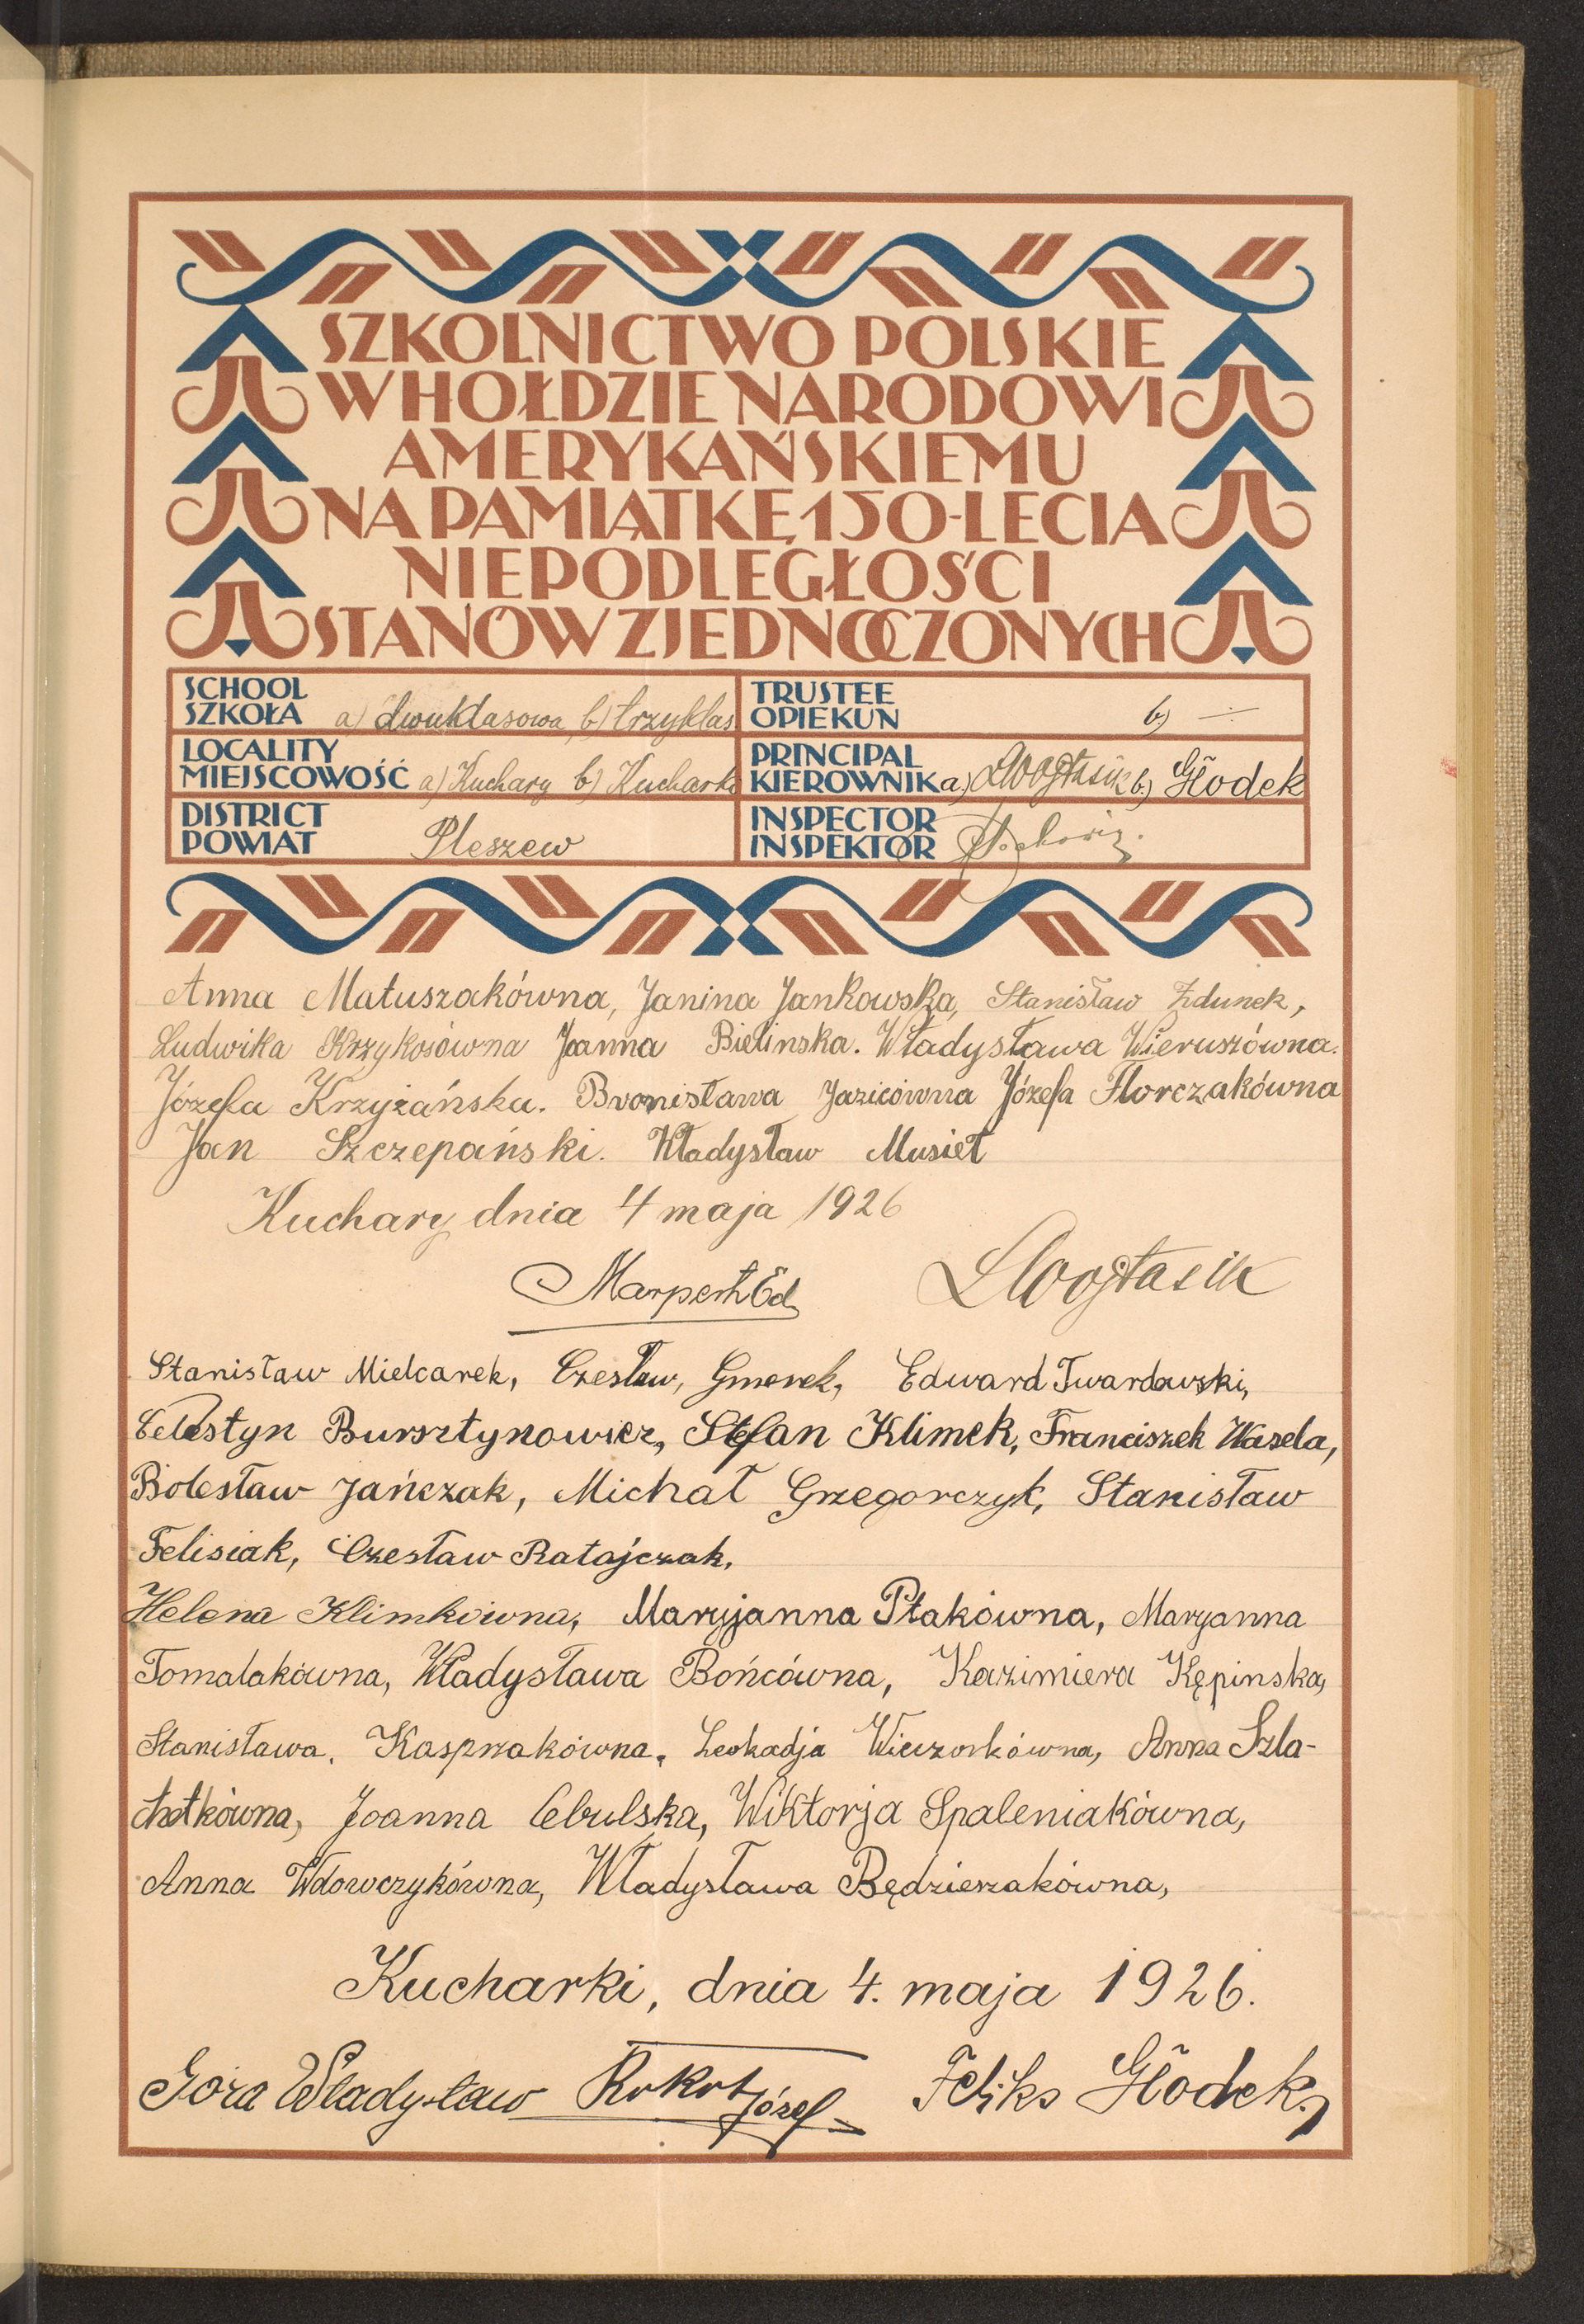 SZKOLNICTWO POLSKIE
W HOŁDZIE NARODOWI
AMERYKAŃSKIEMU
NA PAMIĄTKĘ 150-LECIA
NIEPODLEGŁOŚCI
STANÓW ZJEDNOCZONYCH
SCHOOL
SZKOŁA a) dwuklasowa, b) trzyklas
TRUSTEE
OPIEKUN b)
LOCALITY
MIEJSCOWOŚĆ a) Kuchary b) Kucharki
PRINCIPAL
KIEROWNIK a) b) Głodek
DISTRICT
POWIAT Pleszew
INSPECTOR
INSPEKTOR
Anna Matuszakówna, Janina Jankowska, Stanisław Zdunek,
Ludwika Krzykosówna Joanna Bielinska. Władysława Wieruszówna.
Józefa Krzyżańska. Bronisława Jazicówna Józefa Florczakówna
Jan Szczepański. Władysław Musieł
Kuchary dnia 4 maja 1926
Marpert Ed
Stanisław Mielcarek, Czesław, Gmerek, Edward Twardowski,
Celestyn Bursztynowicz, Stefan Klimek, Franciszek Wasela,
Bolesław Jańczak, Michał Grzegorczyk, Stanisław
Felisiak, Czesław Ratajczak.
Helena Klimkówna, Maryjanna Ptakówna, Maryanna
Tomalakówna, Władysława Bońcówna, Kazimiera Kępinska,
Stanisława, Kasprzakówna, Leokadja Wieczorkówna, Anna Szla-
chetkówna, Joanna Cebulska, Wiktorja Spaleniakówna,
Anna Wdowczykówna, Władysława Będzieszakówna,
Kucharki, dnia 4. maja 1926.
Góra Władysław Rokot Józef Feliks Głodek